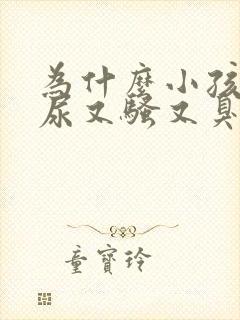 為什麼小孩
尿又騷又臭
童寶玲